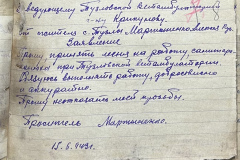 Заведующему Тузловской Ветамбулаторией
г-ну Крикунову.
От жителя с. Тузлы Мартыненко
Заявление
Прошу принять меня на работу
при Тузловской ветамбулатории.
Обязуюсь выполнять работу, добросовестно
и аккуратно.
Прошу не отказать моей просьбы.
Проситель Мартыненко.
15.6.1943г.